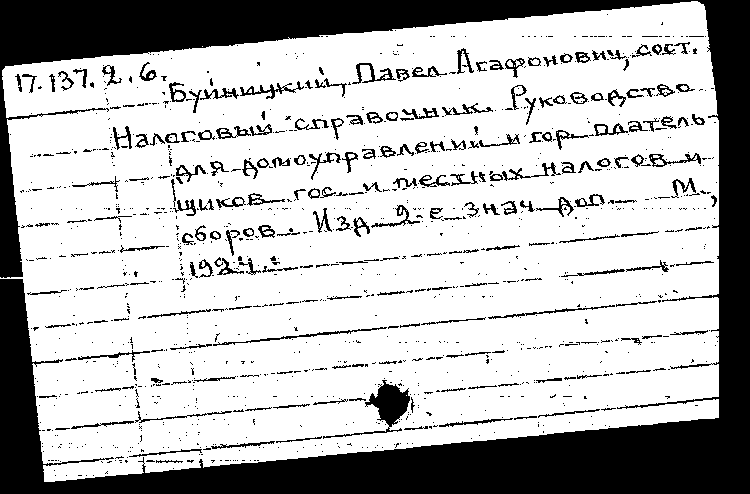 17.137.2.6.
Буйницкий, Павел Агафонович, сост.
Налоговый справочник. Руководство
для домоуправлений и гор. платель-
щиков гос. и местных налогов и
сборов. Изд. 2-е знач. доп. М.,
1924.